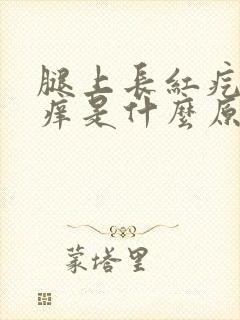 腿上長紅疙
癢是什麼原
蒙塔里